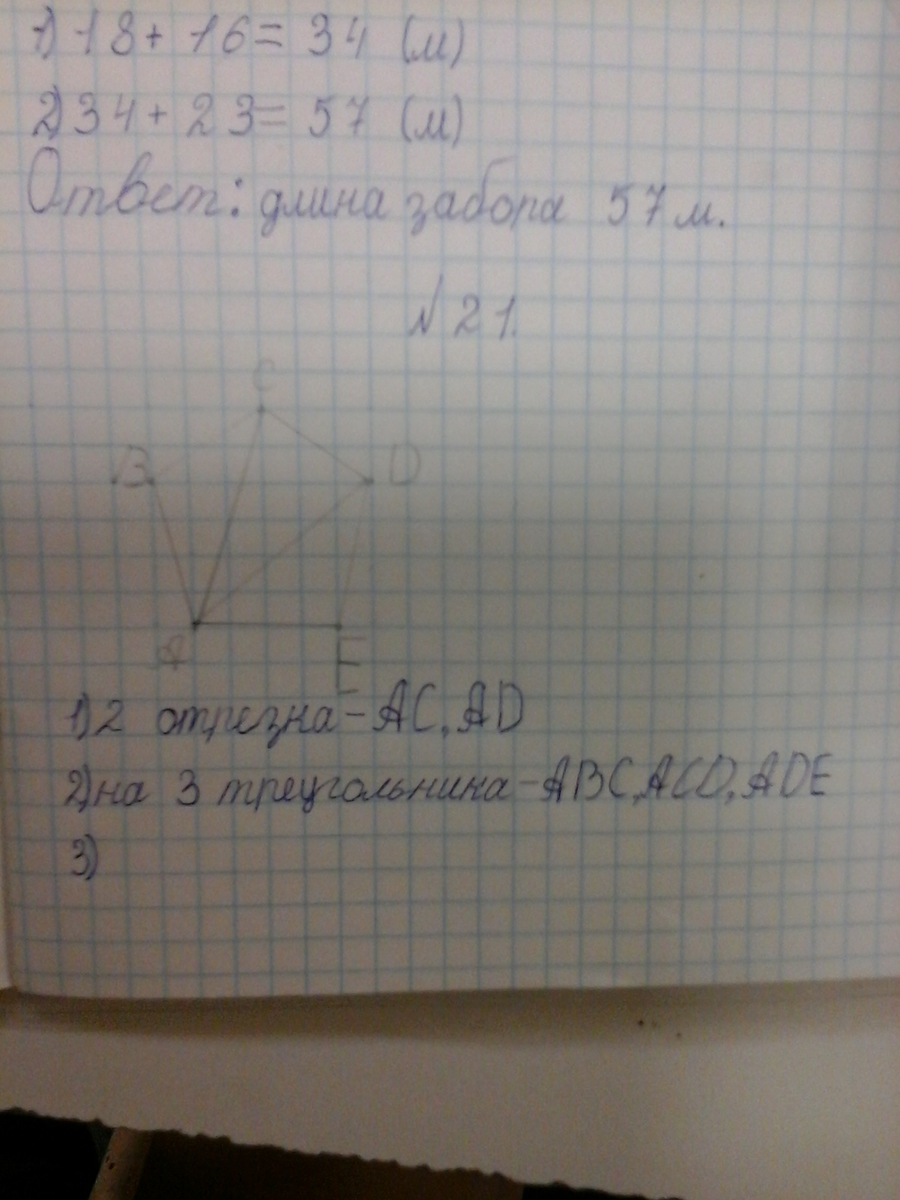 1) 18 + 16 = 34 (м)
2) 34 + 23 = 57 (м)
Ответ: длина забора 57 м.
№ 21.
C
B
D
A
E
1) 2 отрезка - AC, AD
2) на 3 треугольника - ABC, ACD, ADE
3)